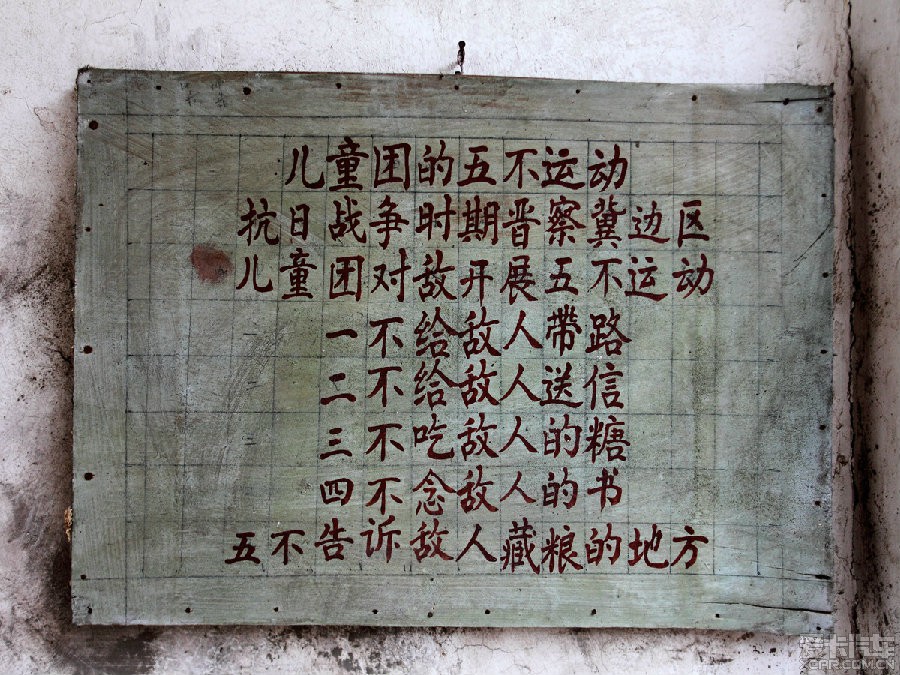 儿童团的五不运动
抗日战争时期晋察冀边区
儿童团对敌开展五不运动
一不给敌人帶路
二不给敌人送信
三不吃敌人的糖
四不念敌人的书
五不告诉敌人藏粮的地方
爱卡汽车
XCAR.COM.CN